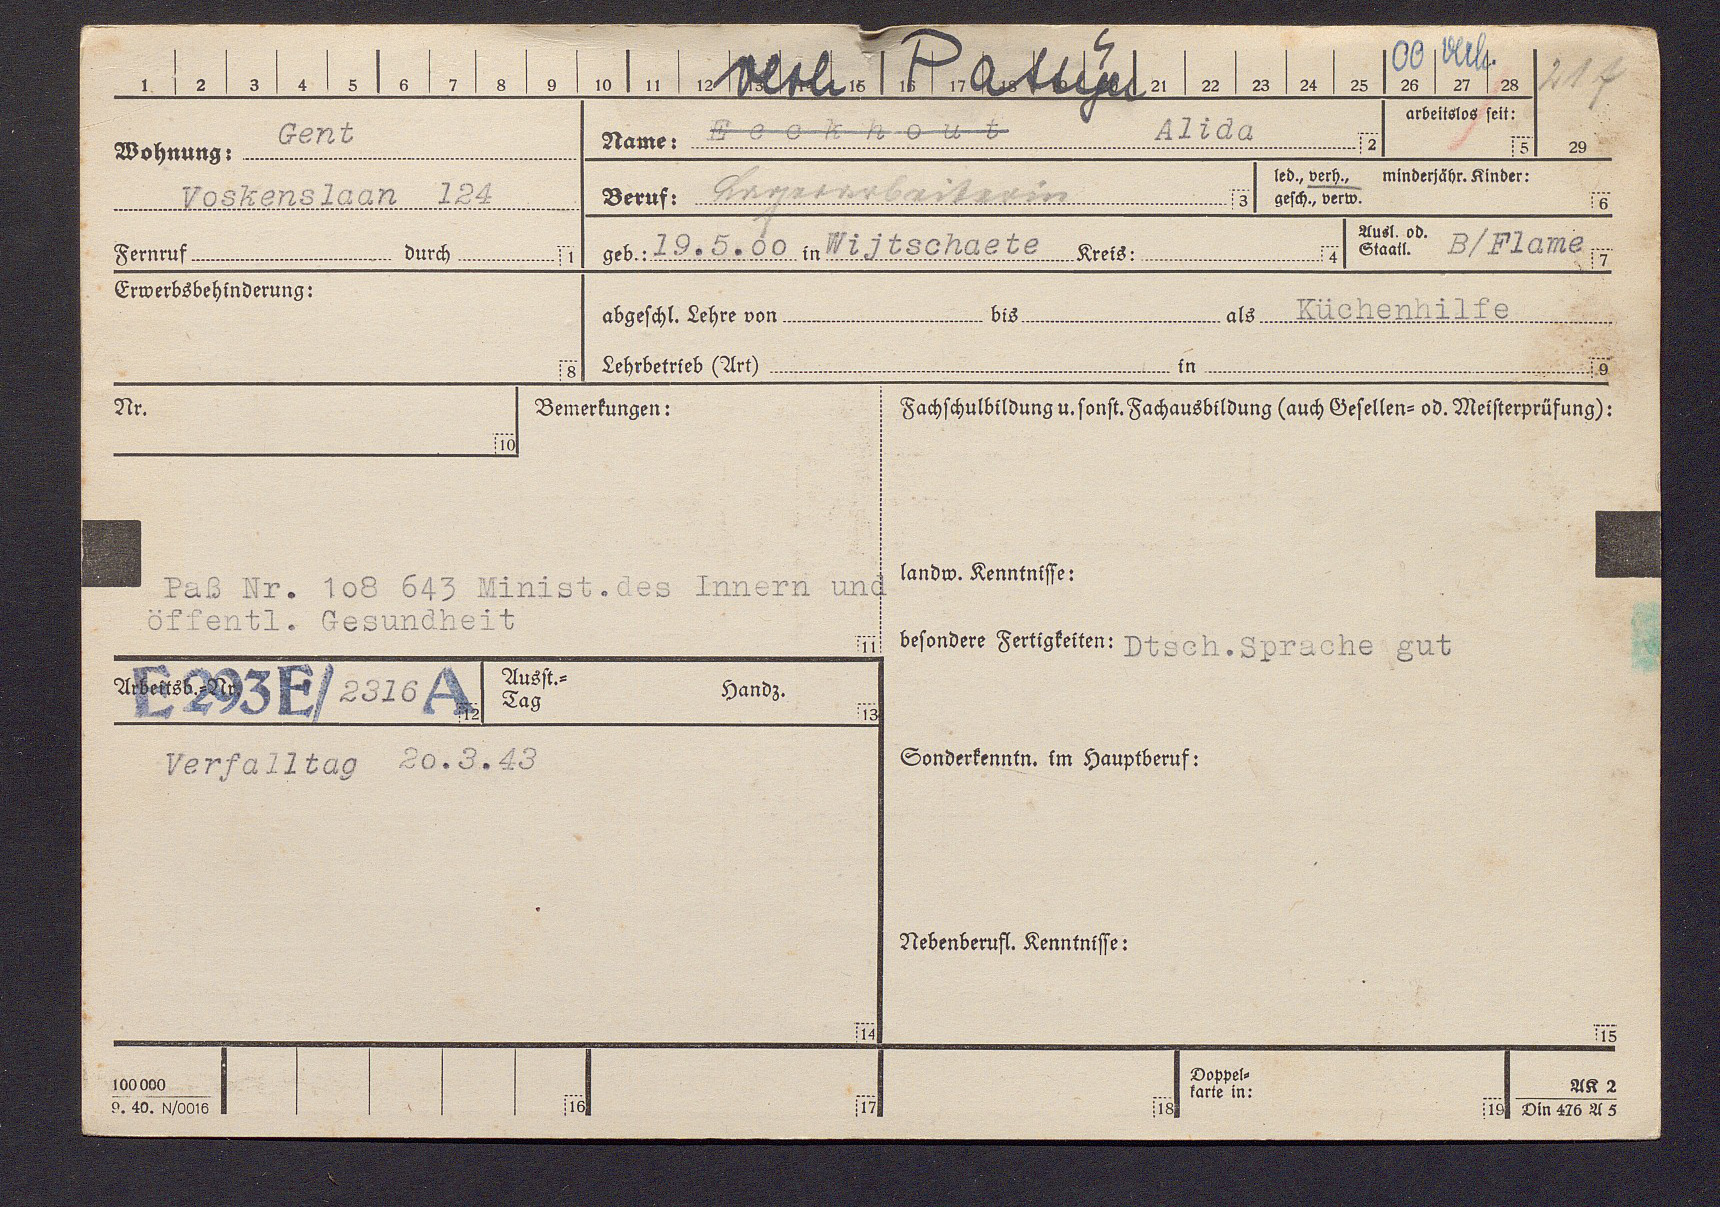 1 2 3 4 5 6 7 8 9 10 11 12 13 14 15 16 17 18 19 20 21 22 23 24 25 26 27 28
verh Pattÿn
00 verh.
217
arbeitslos seit: 5 29
Wohnung: Gent
Name: Eeckhout Alida 2
Voskenslaan 124
Beruf: Lagerarbeiterin 3
led., verh., minderjähr. Kinder:
gesch., verw. 6
Fernruf durch 1
geb.: 19.5.00 in Wijtschaete Kreis: 4
Ausl. od.
Staatl. B/Flame 7
Erwerbsbehinderung: 8
abgeschl. Lehre von bis als Küchenhilfe
Lehrbetrieb (Art) in 9
Nr. 10
Bemerkungen:
Fachschulbildung u. sonst. Fachausbildung (auch Gesellen= od. Meisterprüfung):
Paß Nr. 1o8 643 Minist.des Innern und
öffentl. Gesundheit 11
landw. Kenntnisse:
besondere Fertigkeiten: Dtsch.Sprache gut
Arbeitsb.=Nr. E 293 E/ 2316 A 12
Ausst.=
Tag Handz. 13
Verfalltag 2o.3.43
14
Sonderkenntn. im Hauptberuf:
Nebenberufl. Kenntnisse:
15
100 000
9. 40. N/0016
16 17 18
Doppel=
karte in: 19
AK 2
Din 476 A 5